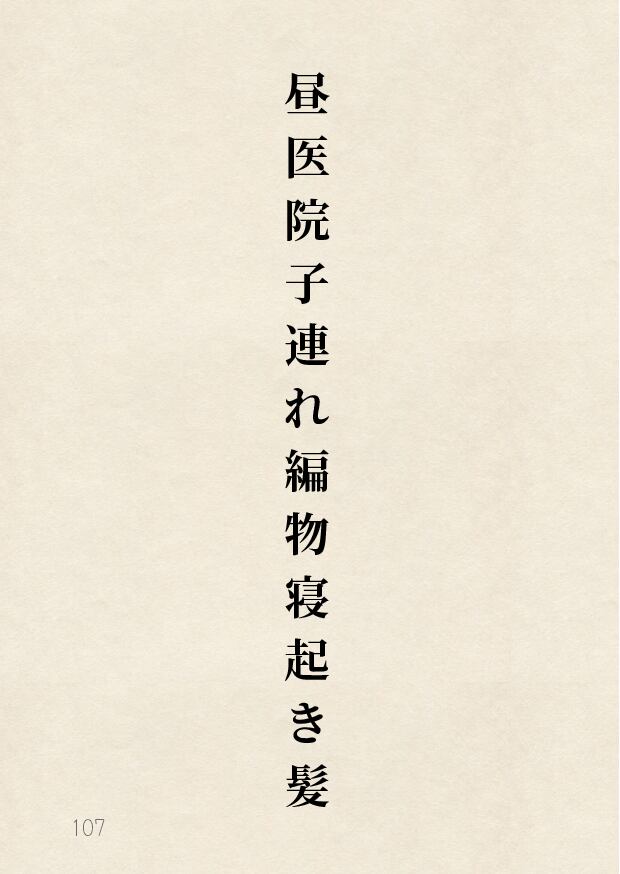 昼医院子連れ編物寝起き髪
107